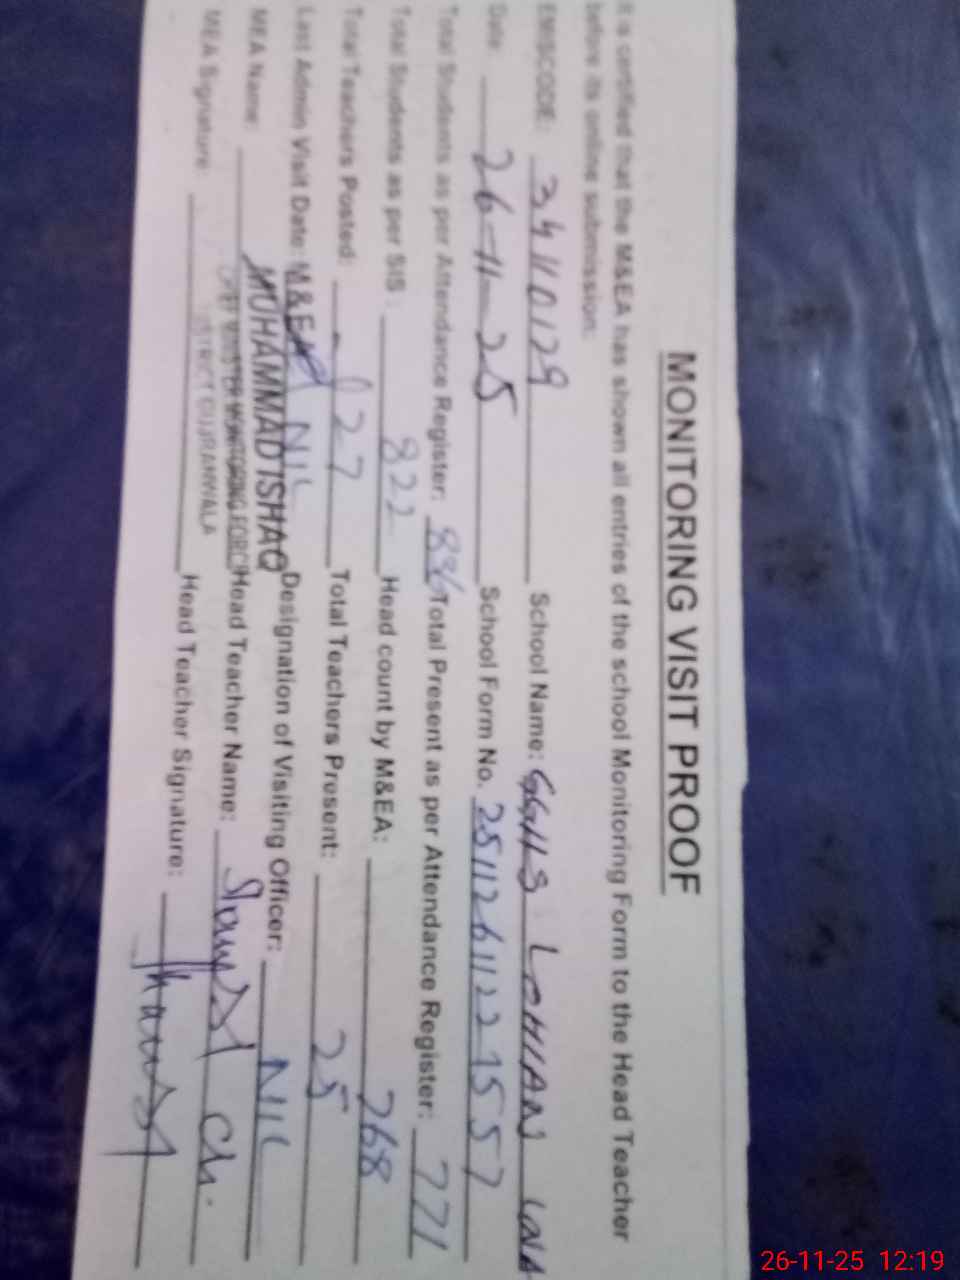 MONITORING VISIT PROOF
It is certified that the M&EA has shown all entries of the school Monitoring Form to the Head Teacher
before its online submission:
EMISCODE: 34110129 School Name: GGHS LOHIAN WALA
Date: 26-11-25 School Form No. 251126112 2 1557
Total Students as per Attendance Register: 836 Total Present as per Attendance Register: 771
Total Students as per SIS: 822 Head count by M&EA: 768
Total Teachers Posted: 27 Total Teachers Present: 25
Last Admin Visit Date: NIL Designation of Visiting Officer: NIL
MEA Name: M&EA MUHAMMAD ISHAQ Head Teacher Name: Ch.
CHIEF MINISTER MONITORING FORCE
MEA Signature: DISTRICT GUJRANWALA Head Teacher Signature:
26-11-25 12:19